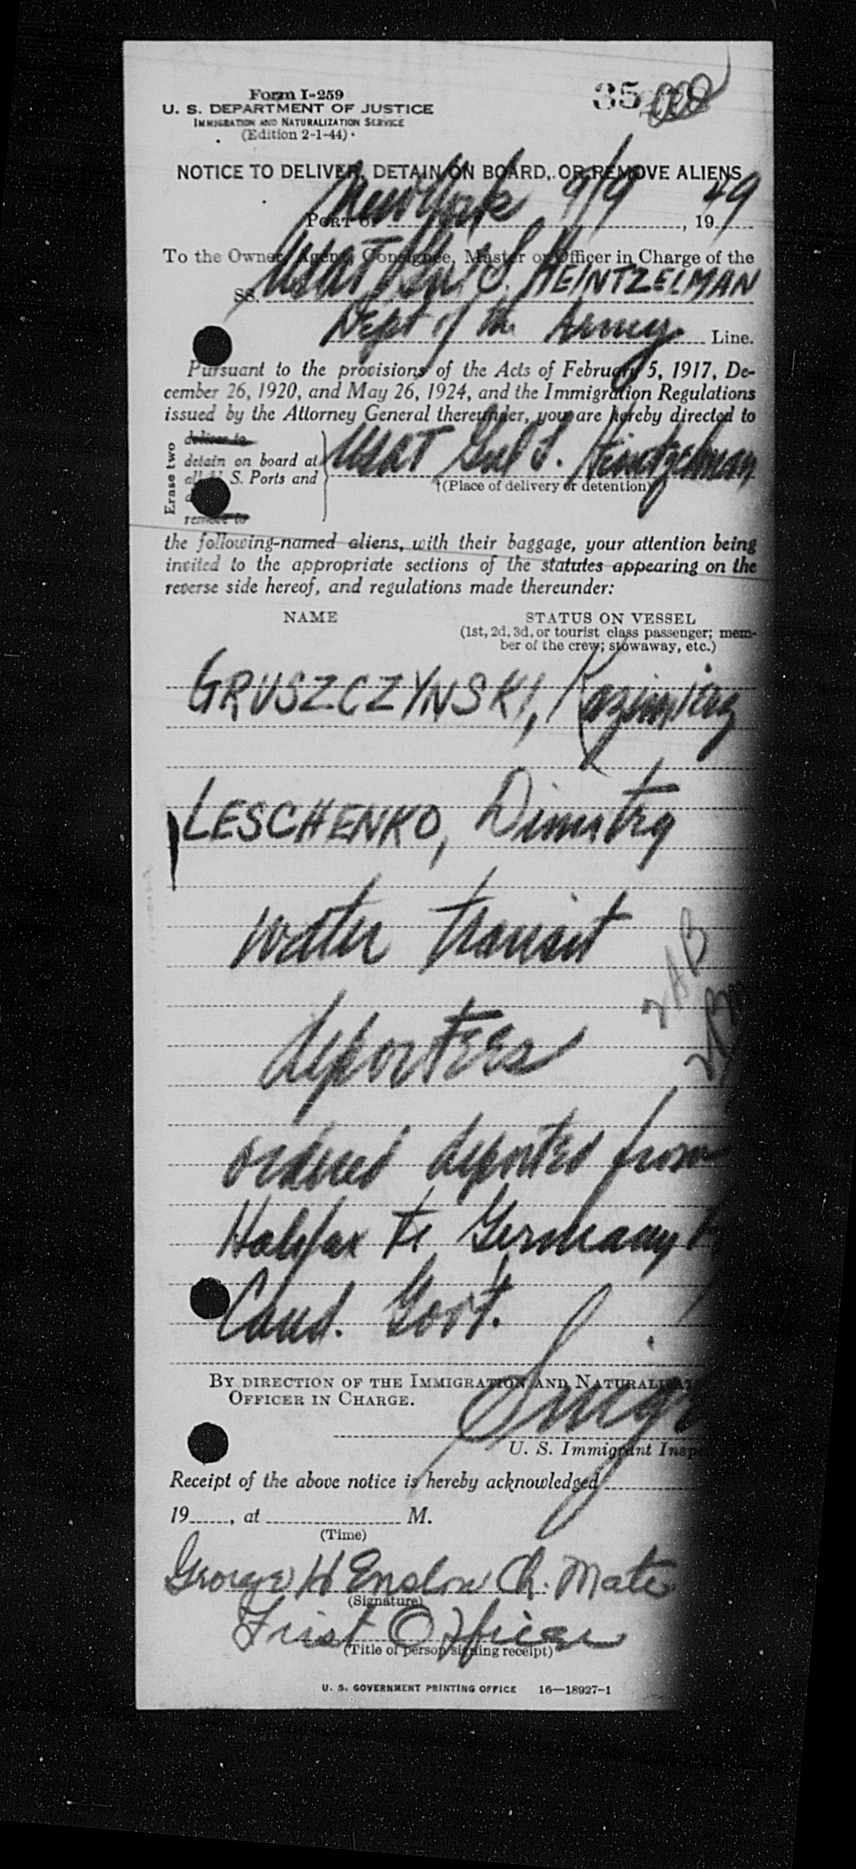 Form I-259
U. S. DEPARTMENT OF JUSTICE
IMMIGRATION AND NATURALIZATION SERVICE
(Edition 2-1-44)
35
NOTICE TO DELIVER, DETAIN ON BOARD, OR REMOVE ALIENS
PORT OF New York 9/9, 1949
To the Owner, Agent, Consignee, Master or Officer in Charge of the
SS. USAT Gen'l S. HEINTZELMAN
Dept of the Army Line.
Pursuant to the provisions of the Acts of February 5, 1917, De-
cember 26, 1920, and May 26, 1924, and the Immigration Regulations
issued by the Attorney General thereunder, you are hereby directed to
Erase two
deliver to
detain on board at USAT Genl S. Heintzelman
all U. S. Ports and
(Place of delivery or detention)
remove to
the following-named aliens, with their baggage, your attention being
invited to the appropriate sections of the statutes appearing on the
reverse side hereof, and regulations made thereunder:
NAME STATUS ON VESSEL
(1st, 2d, 3d, or tourist class passenger; mem-
ber of the crew; stowaway, etc.)
GRUSZCZYNSKI, Kazimierz
LESCHENKO, Dimitry
water transit
deportees
ordered deported from
Halifax to Germany
Cand. Govt.
BY DIRECTION OF THE IMMIGRATION AND
OFFICER IN CHARGE.
U. S. Immigrant
Receipt of the above notice is hereby acknowledged
19, at M.
(Time)
George H Enslow Ch. Mate
(Signature)
First Officer
(Title of person signing receipt)
U. S. GOVERNMENT PRINTING OFFICE 16—18927-1